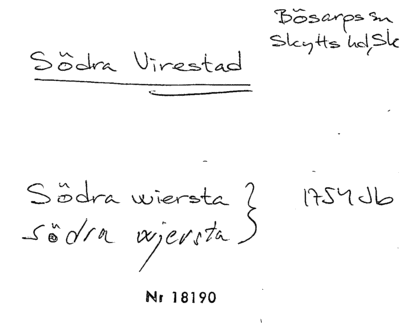 Bösarps sn
Skytts hd, Sk
Södra Virestad
Södra wiersta } 1754 Jb
södra wjersta
Nr 18190